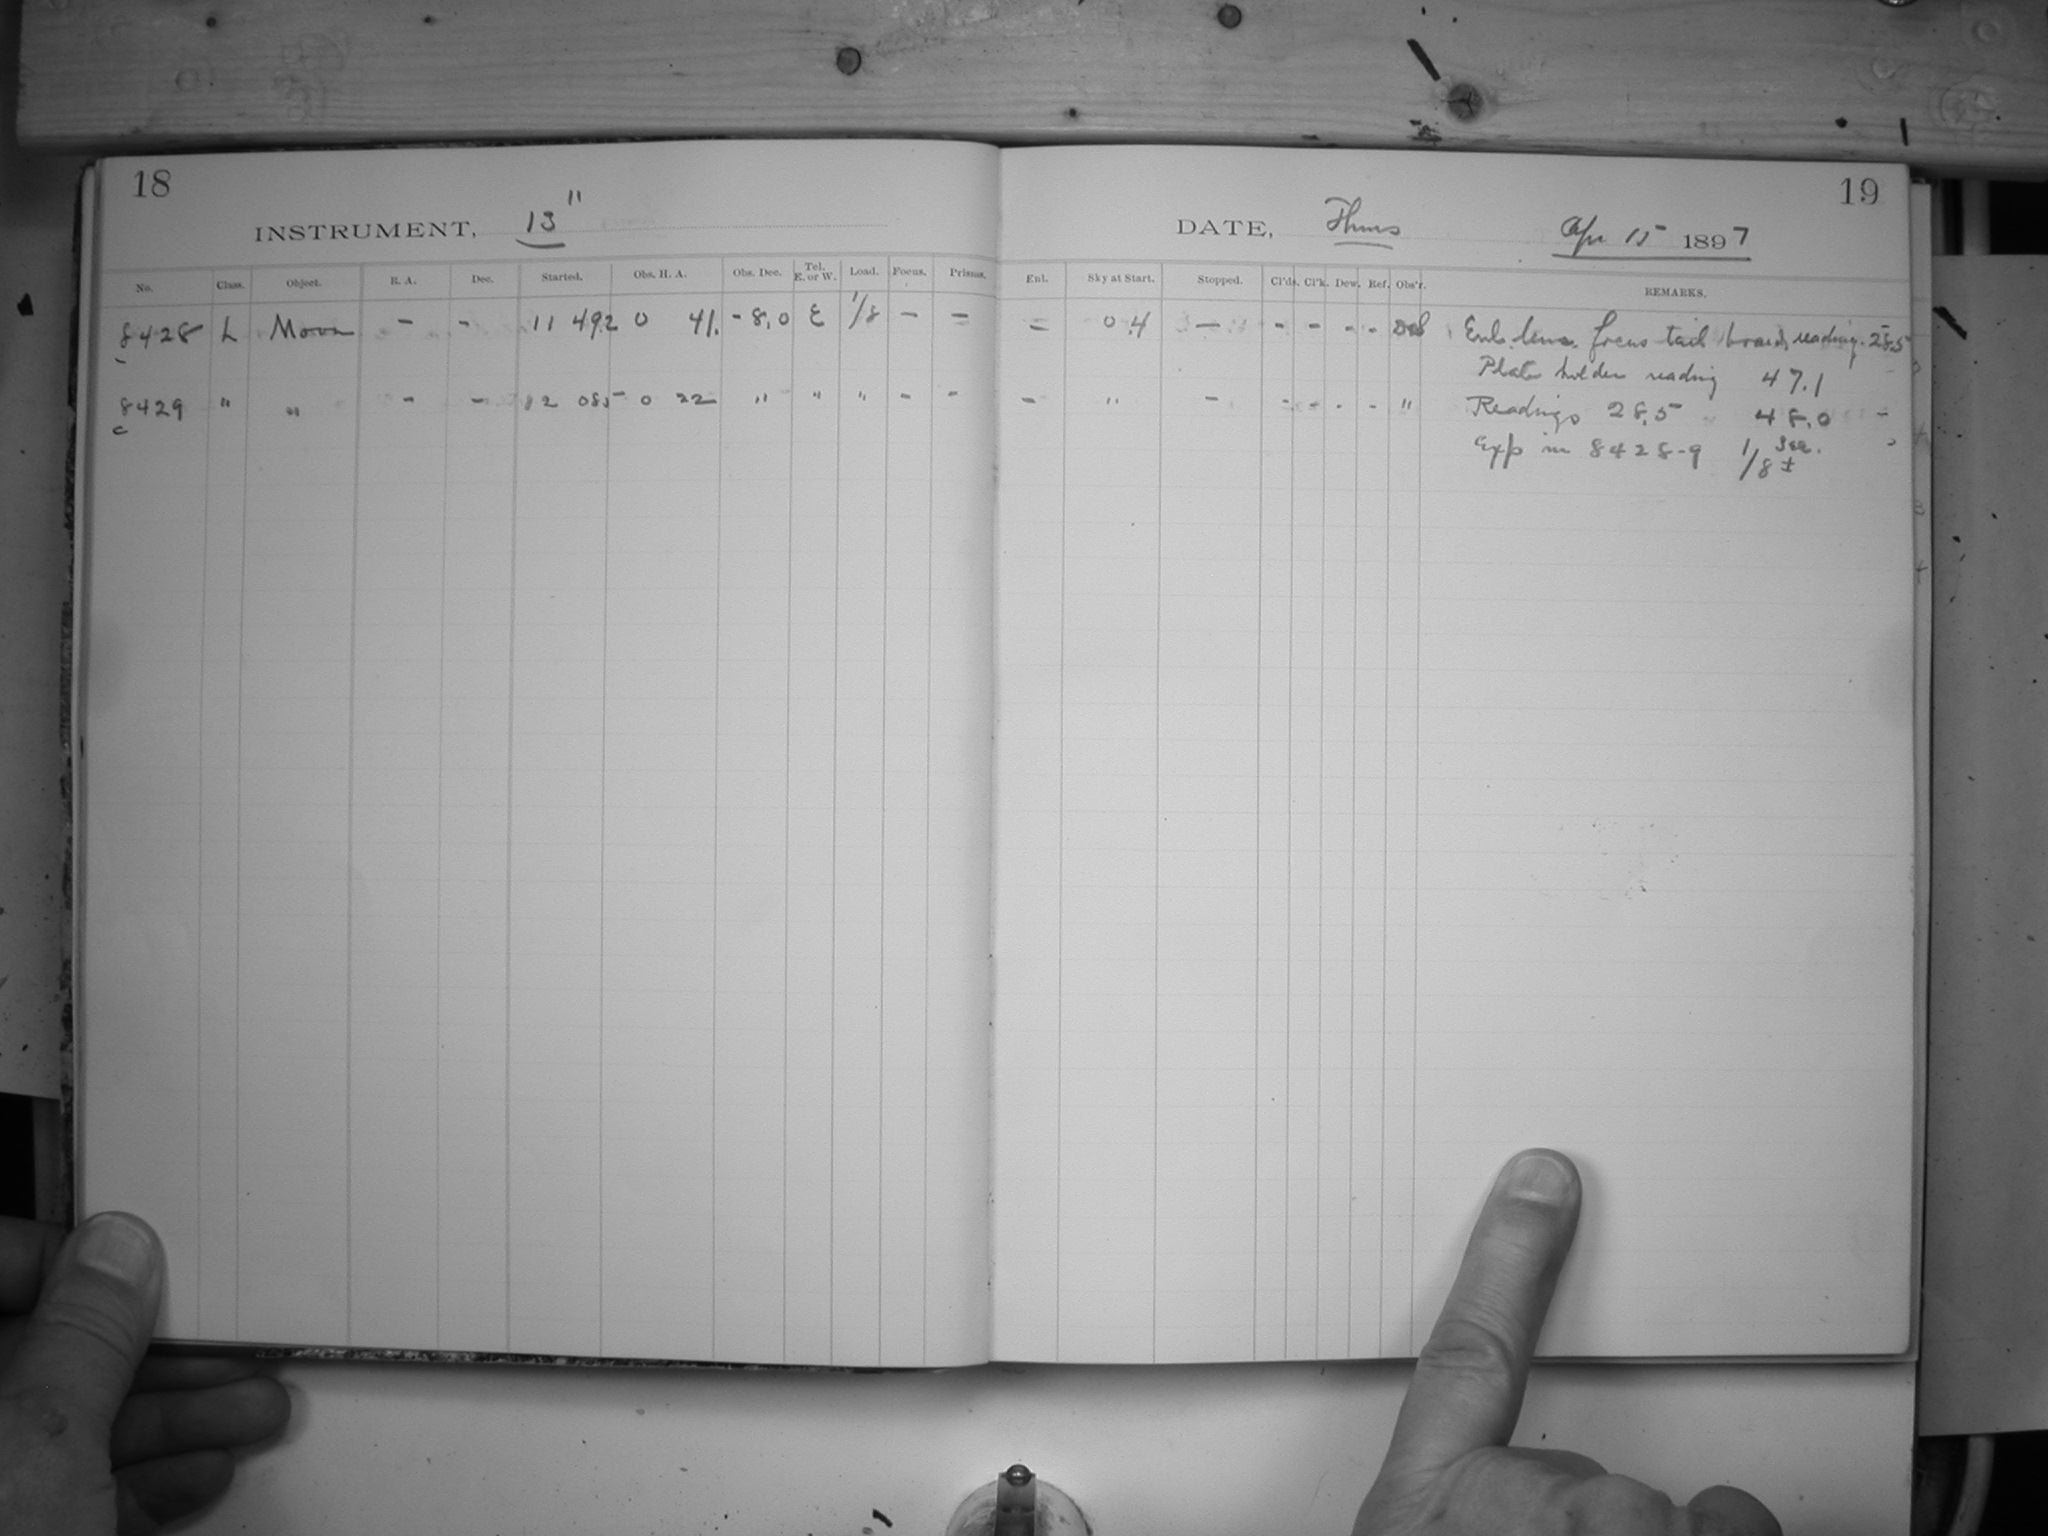 18
INSTRUMENT, 13"
No. Class. Object. R. A. Dec. Started. Obs. H. A. Obs. Dec. Tel. E. or W. Load. Focus. Prisms.
8428 L Moon - - 11 49.2 0 41. -8.0 E 1/8 - -
8429 " " - - 12 08.5 0 22 " " " - -
19
DATE, Thurs Apr 15 1897
Enl. Sky at Start. Stopped. Cl'ds. Cl'k. Dew. Ref. Obs'r. REMARKS.
- 0.4 - - - - - Enl. lens. focus tail board reading. 28.5
Plate holder reading 47.1
- " - - - - - " Readings 28.5 48.0
Exp in 8428-9 1/8 ± sec.